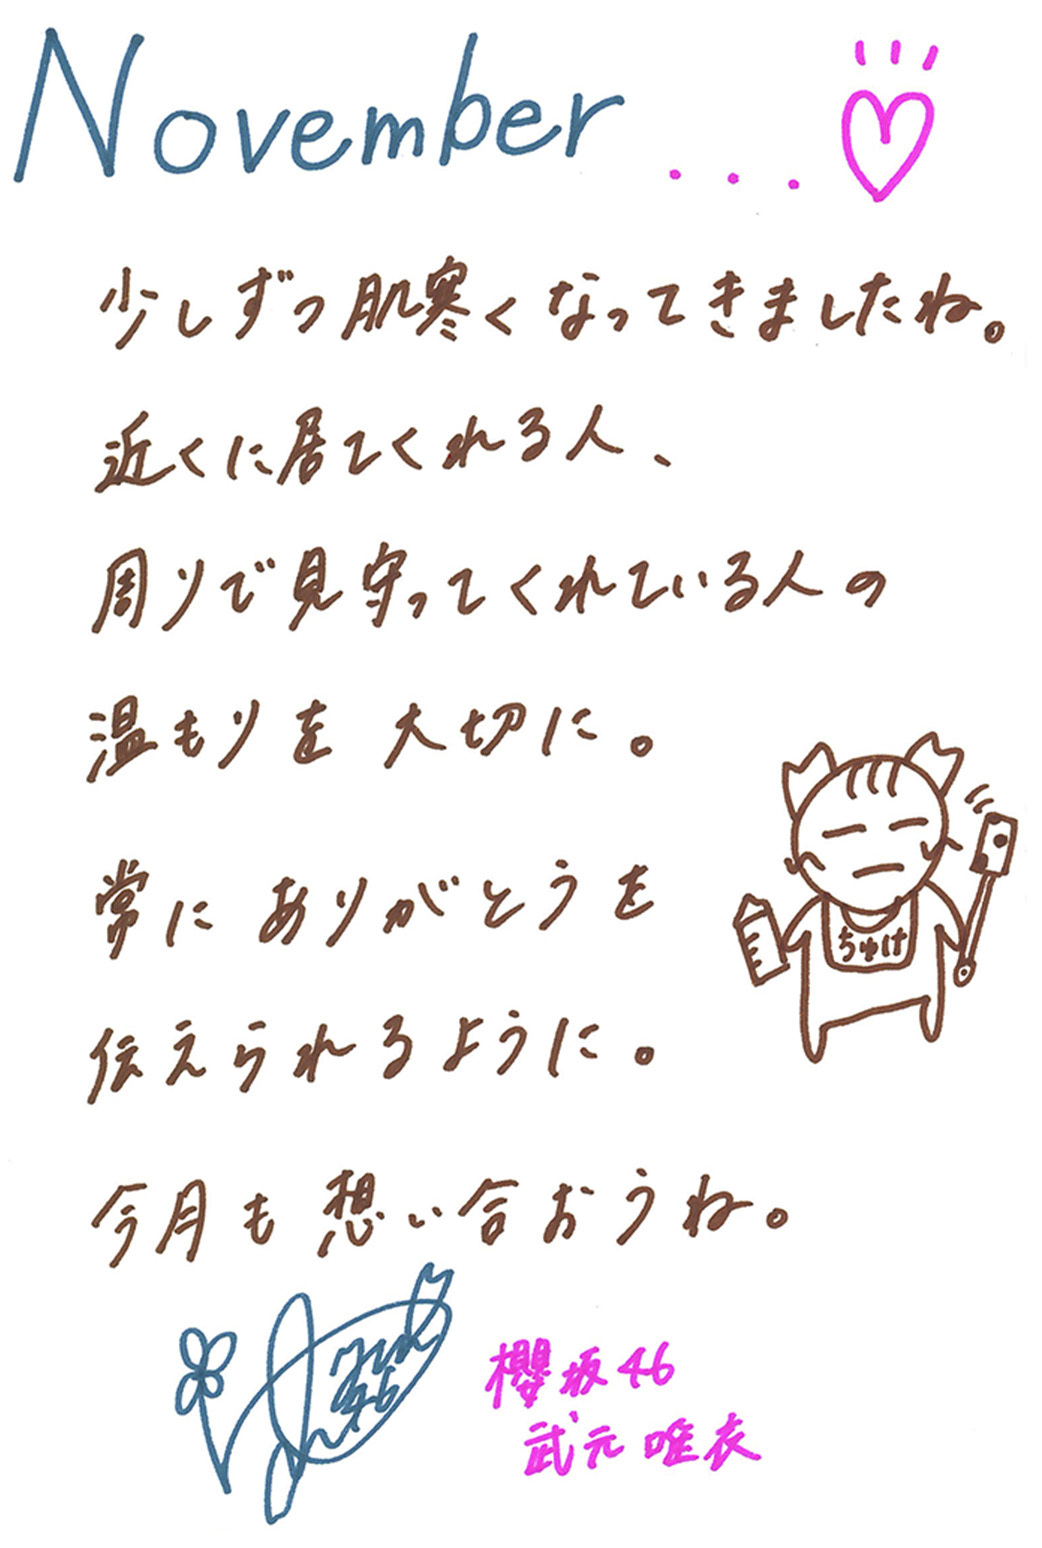 November...♡
少しずつ肌寒くなってきましたね。
近くに居てくれる人、
周りで見守ってくれている人の
温もりを大切に。
常にありがとうを
伝えられるように。
ちゅけ
今月も想い合おうね。
櫻坂46
武元唯衣